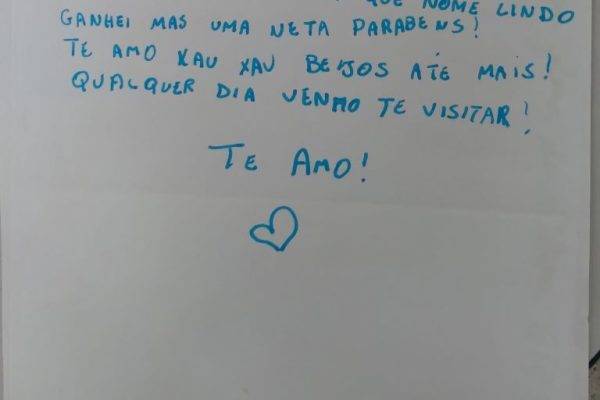 QUE NOME LINDO
GANHEI MAS UMA NETA PARABENS!
TE AMO XAU XAU BEIJOS ATÉ MAIS!
QUALQUER DIA VENHO TE VISITAR!
TE AMO!